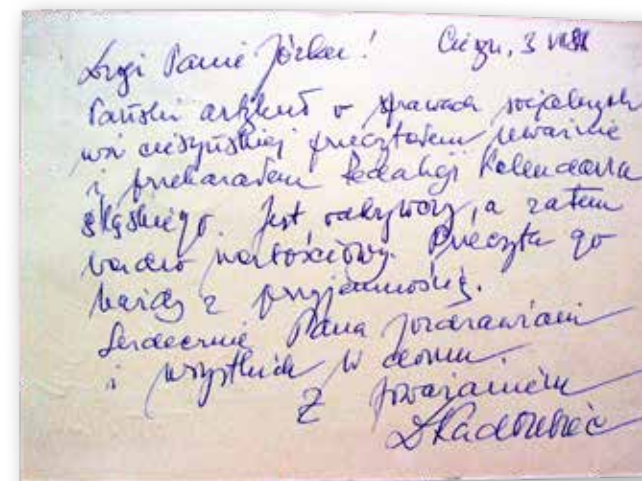 Drogi Panie Józku! Cieszyn, 3 VII 88
Pański artykuł o sprawach socjalnych
wsi cieszyńskiej przeczytałem uważnie
i przekazałem Redakcji Kalendarza
Śląskiego. Jest odkrywczy, a zatem
bardzo wartościowy. Przeczyta go
każdy z przyjemnością.
Serdecznie Pana pozdrawiam
i wszystkich w domu.
Z poważaniem
DKadłubiec